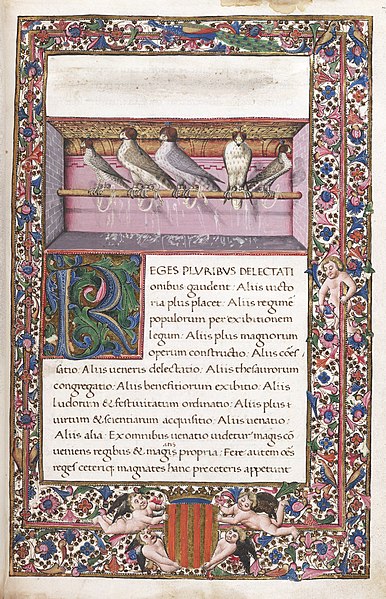 REGES PLVRIBVS DELECTATI
onibus gaudent: Aliis uicto
ria plus placet: Aliis regumē
populorum per exibitionem
legum: Aliis plus magnorum
operum constructio: Aliis cōēs
sitio: Aliis ueneris delectatio: Aliis thesaurorum
congregatio: Aliis benefitiorum exibitio: Aliis
ludorum & festiuitatum ordinatio: Aliis plus
uirtum & scientiarum acquisitio: Aliis uenatio:
Aliis alia: Ex omnibus uenatio uidetur magis cō
ans
ueniens regibus & magis propria: Fere autem oēs
reges ceteriq; magnates hanc pre ceteris appetunt